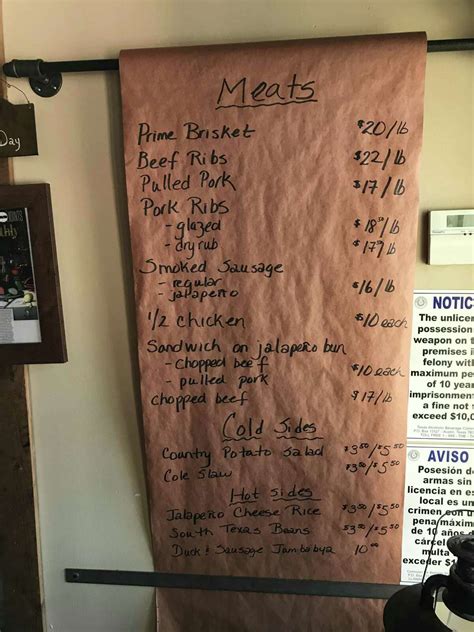 Day
Meats
Prime Brisket $20/lb
Beef Ribs $22/lb
Pulled Pork $17/lb
Pork Ribs
- glazed $18<sup>50</sup>/lb
- dry rub $17<sup>50</sup>/lb
Smoked Sausage
- regular
- jalapeño $16/lb
1/2 chicken $10 each
Sandwich on jalapeño bun
- chopped beef
- pulled pork $10 each
chopped beef $17/lb
Cold Sides
Country Potato Salad $3<sup>50</sup>/$5<sup>50</sup>
Cole Slaw $3<sup>50</sup>/$5<sup>50</sup>
Hot Sides
Jalapeño Cheese Rice $3<sup>50</sup>/$5<sup>50</sup>
South Texas Beans $3<sup>50</sup>/$5<sup>50</sup>
Duck & Sausage Jambalaya 10.<sup>00</sup>
NOTIC
The unlicen
possession
weapon on t
premises i
felony with
maximum pe
of 10 years
imprisonment
a fine not
exceed $10,0
AVISO
Posesión de
armas sin
licencia en es
local es un
crimen con u
pena máxim
de 10 años d
cárcel
multa
exceder
$10,